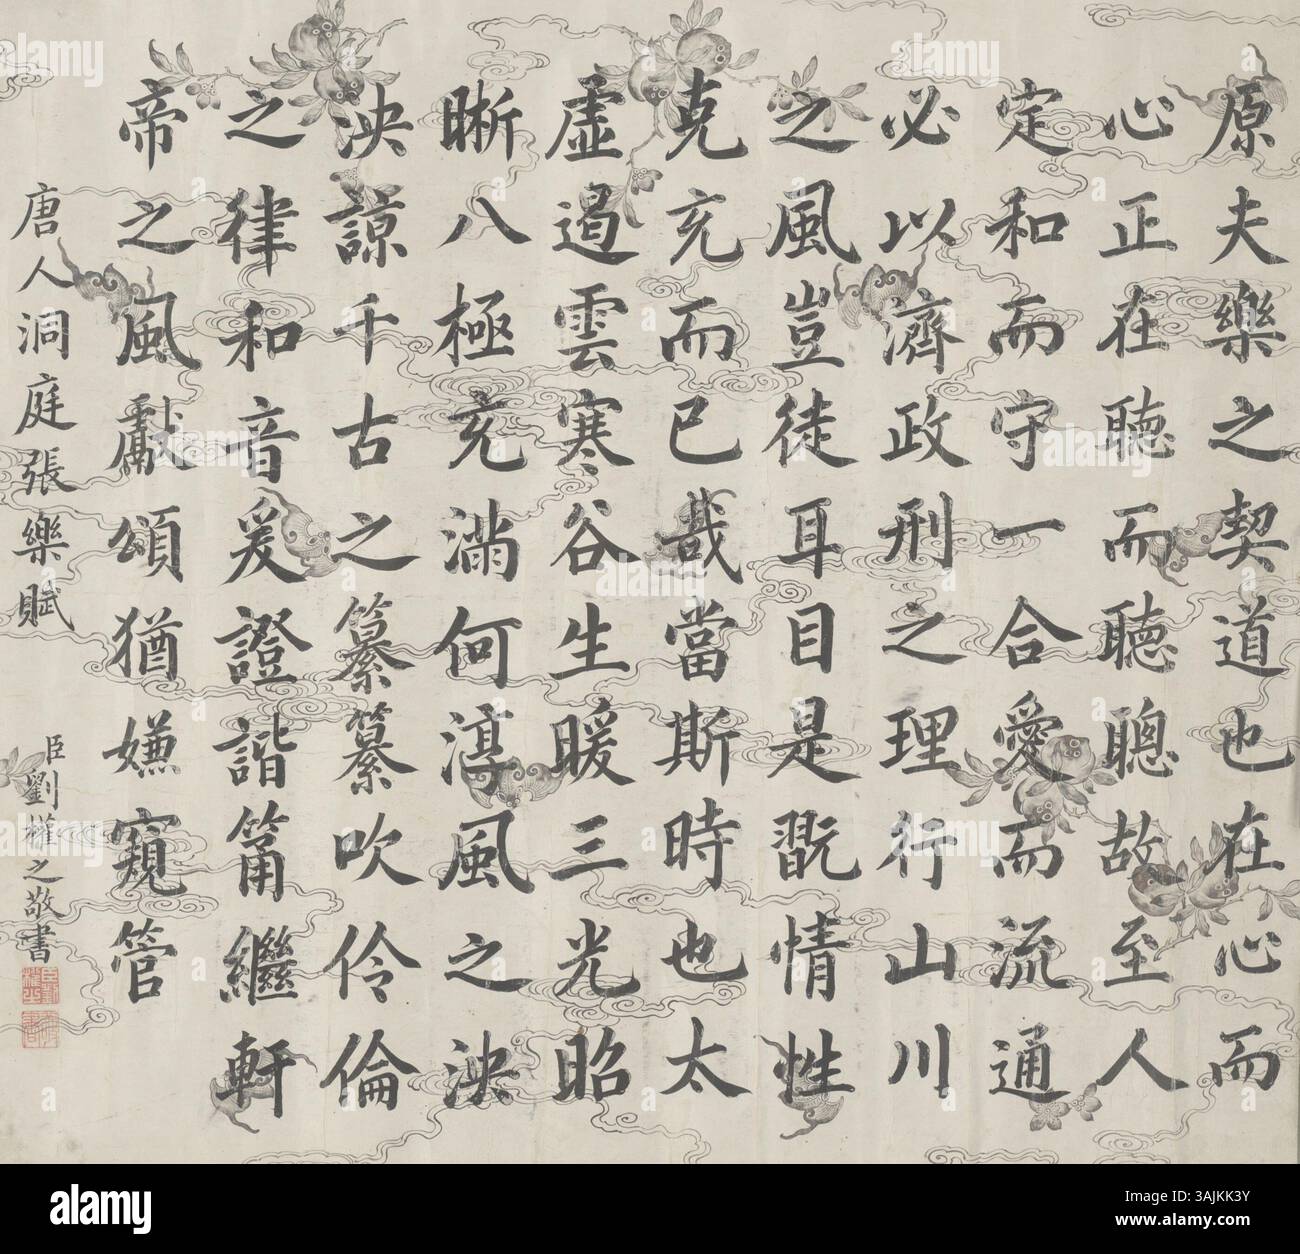 原夫樂之契道也在心而
心正在聽而聽聰故至人
定和而守一合愛而流通
必以濟政刑之理行山川
之風豈徒耳目是翫情性
克充而已哉當斯時也太
虛遏雲寒谷生暖三光昭
晰八極充滿何淳風之泱
泱諒千古之纂纂吹伶倫
之律和音爰證諧筩繼軒
帝之風獻頌猶嫌窺管
唐人洞庭張樂賦
臣劉權之敬書
alamy
Image ID: 3AJKK3Y
www.alamy.com